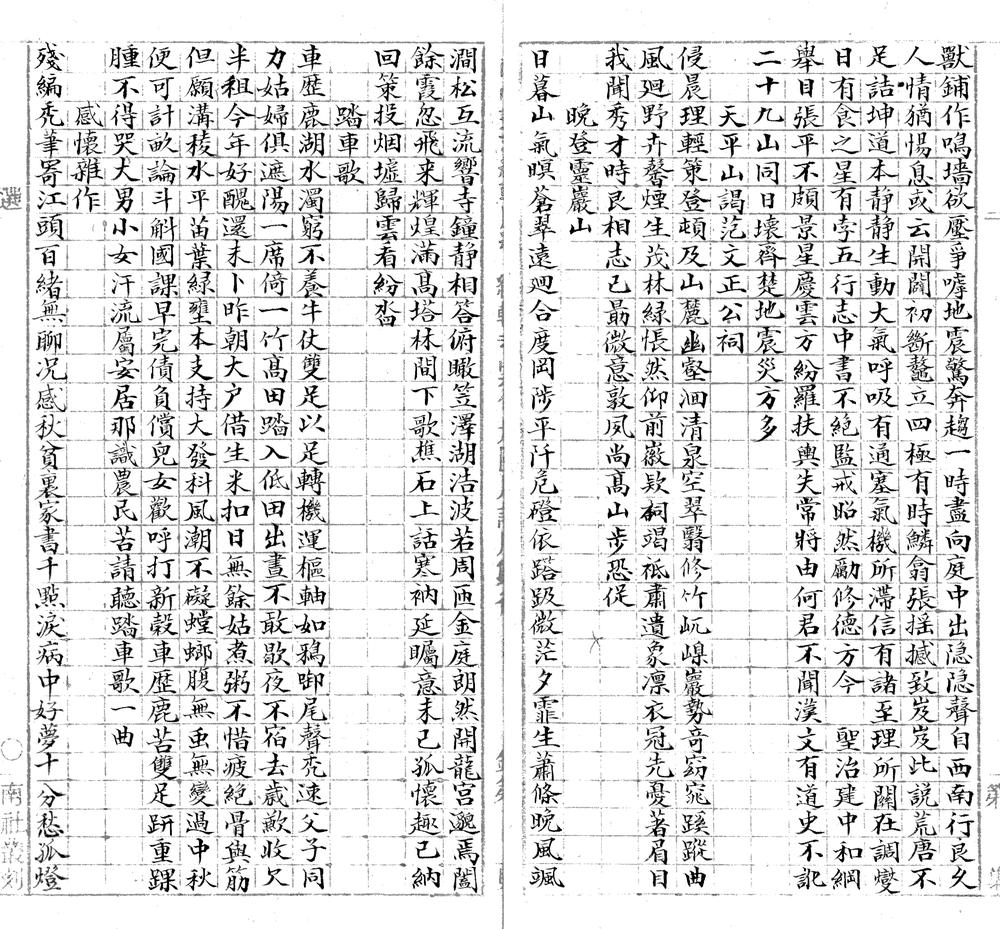 獸鋪作鳴墻欲壓爭嘑地震驚奔趨一時盡向庭中出隐隐聲自西南行良久
人情猶惕息或云開闢初斷鼇立四極有時鱗翕張搖撼致岌岌此説荒唐不
足詰坤道本静静生動大氣呼吸有通塞氣機所滯信有諸至理所關在調燮
日有食之星有孛五行志中書不絶監戒昭然勵修德方今 聖治建中和綱
舉目張平不頗景星慶雲方紛羅扶輿失常將由何君不聞漢文有道史不訛
二十九山同日壞齊楚地震災方多
天平山謁范文正公祠
侵晨理輕策登頓及山麓幽壑洄清泉空翠翳修竹屼嵲巖勢奇窈窕蹊蹤曲
風廻野卉馨煙生茂林緑悵然仰前徽欵祠竭祗肅遺象凛衣冠先憂著眉目
我聞秀才時良相志已勗微意敦夙尚高山步恐促
晚登靈巖山
日暮山氣暝蒼翠遠廻合度岡陟平阡危磴依踏趿微茫夕霏生蕭條晚風颯
澗松互流響寺鐘静相答俯瞰笠澤湖浩波若周匝金庭朗然開龍宮邈焉闔
餘霞忽飛来輝煌滿高塔林間下歌樵石上話寒衲延矚意未已孤懷趣已納
回策投烟墟歸雲看紛沓
踏車歌
車歷鹿湖水濁窮不養牛仗雙足以足轉機運樞軸如鴉啣尾聲秃速父子同
力姑婦俱遮陽一席倚一竹高田踏入低田出晝不敢歇夜不宿去歲歉收欠
半租今年好醜還未卜昨朝大户借生米扣日無餘姑煮粥不惜疲絶骨與筋
但願溝稜水平苗葉緑壅本支持大發科風潮不礙螳螂腹無虫無變過中秋
便可計畝論斗斛國課早完債負償兒女歡呼打新穀車歷鹿苦雙足趼重踝
腫不得哭大男小女汗流屬安居那識農民苦請聽踏車歌一曲
感懷雜作
殘編秃筆寄江頭百緒無聊况感秋貧裏家書千點淚病中好夢十分愁孤燈
選
南社叢刻
二
第
集